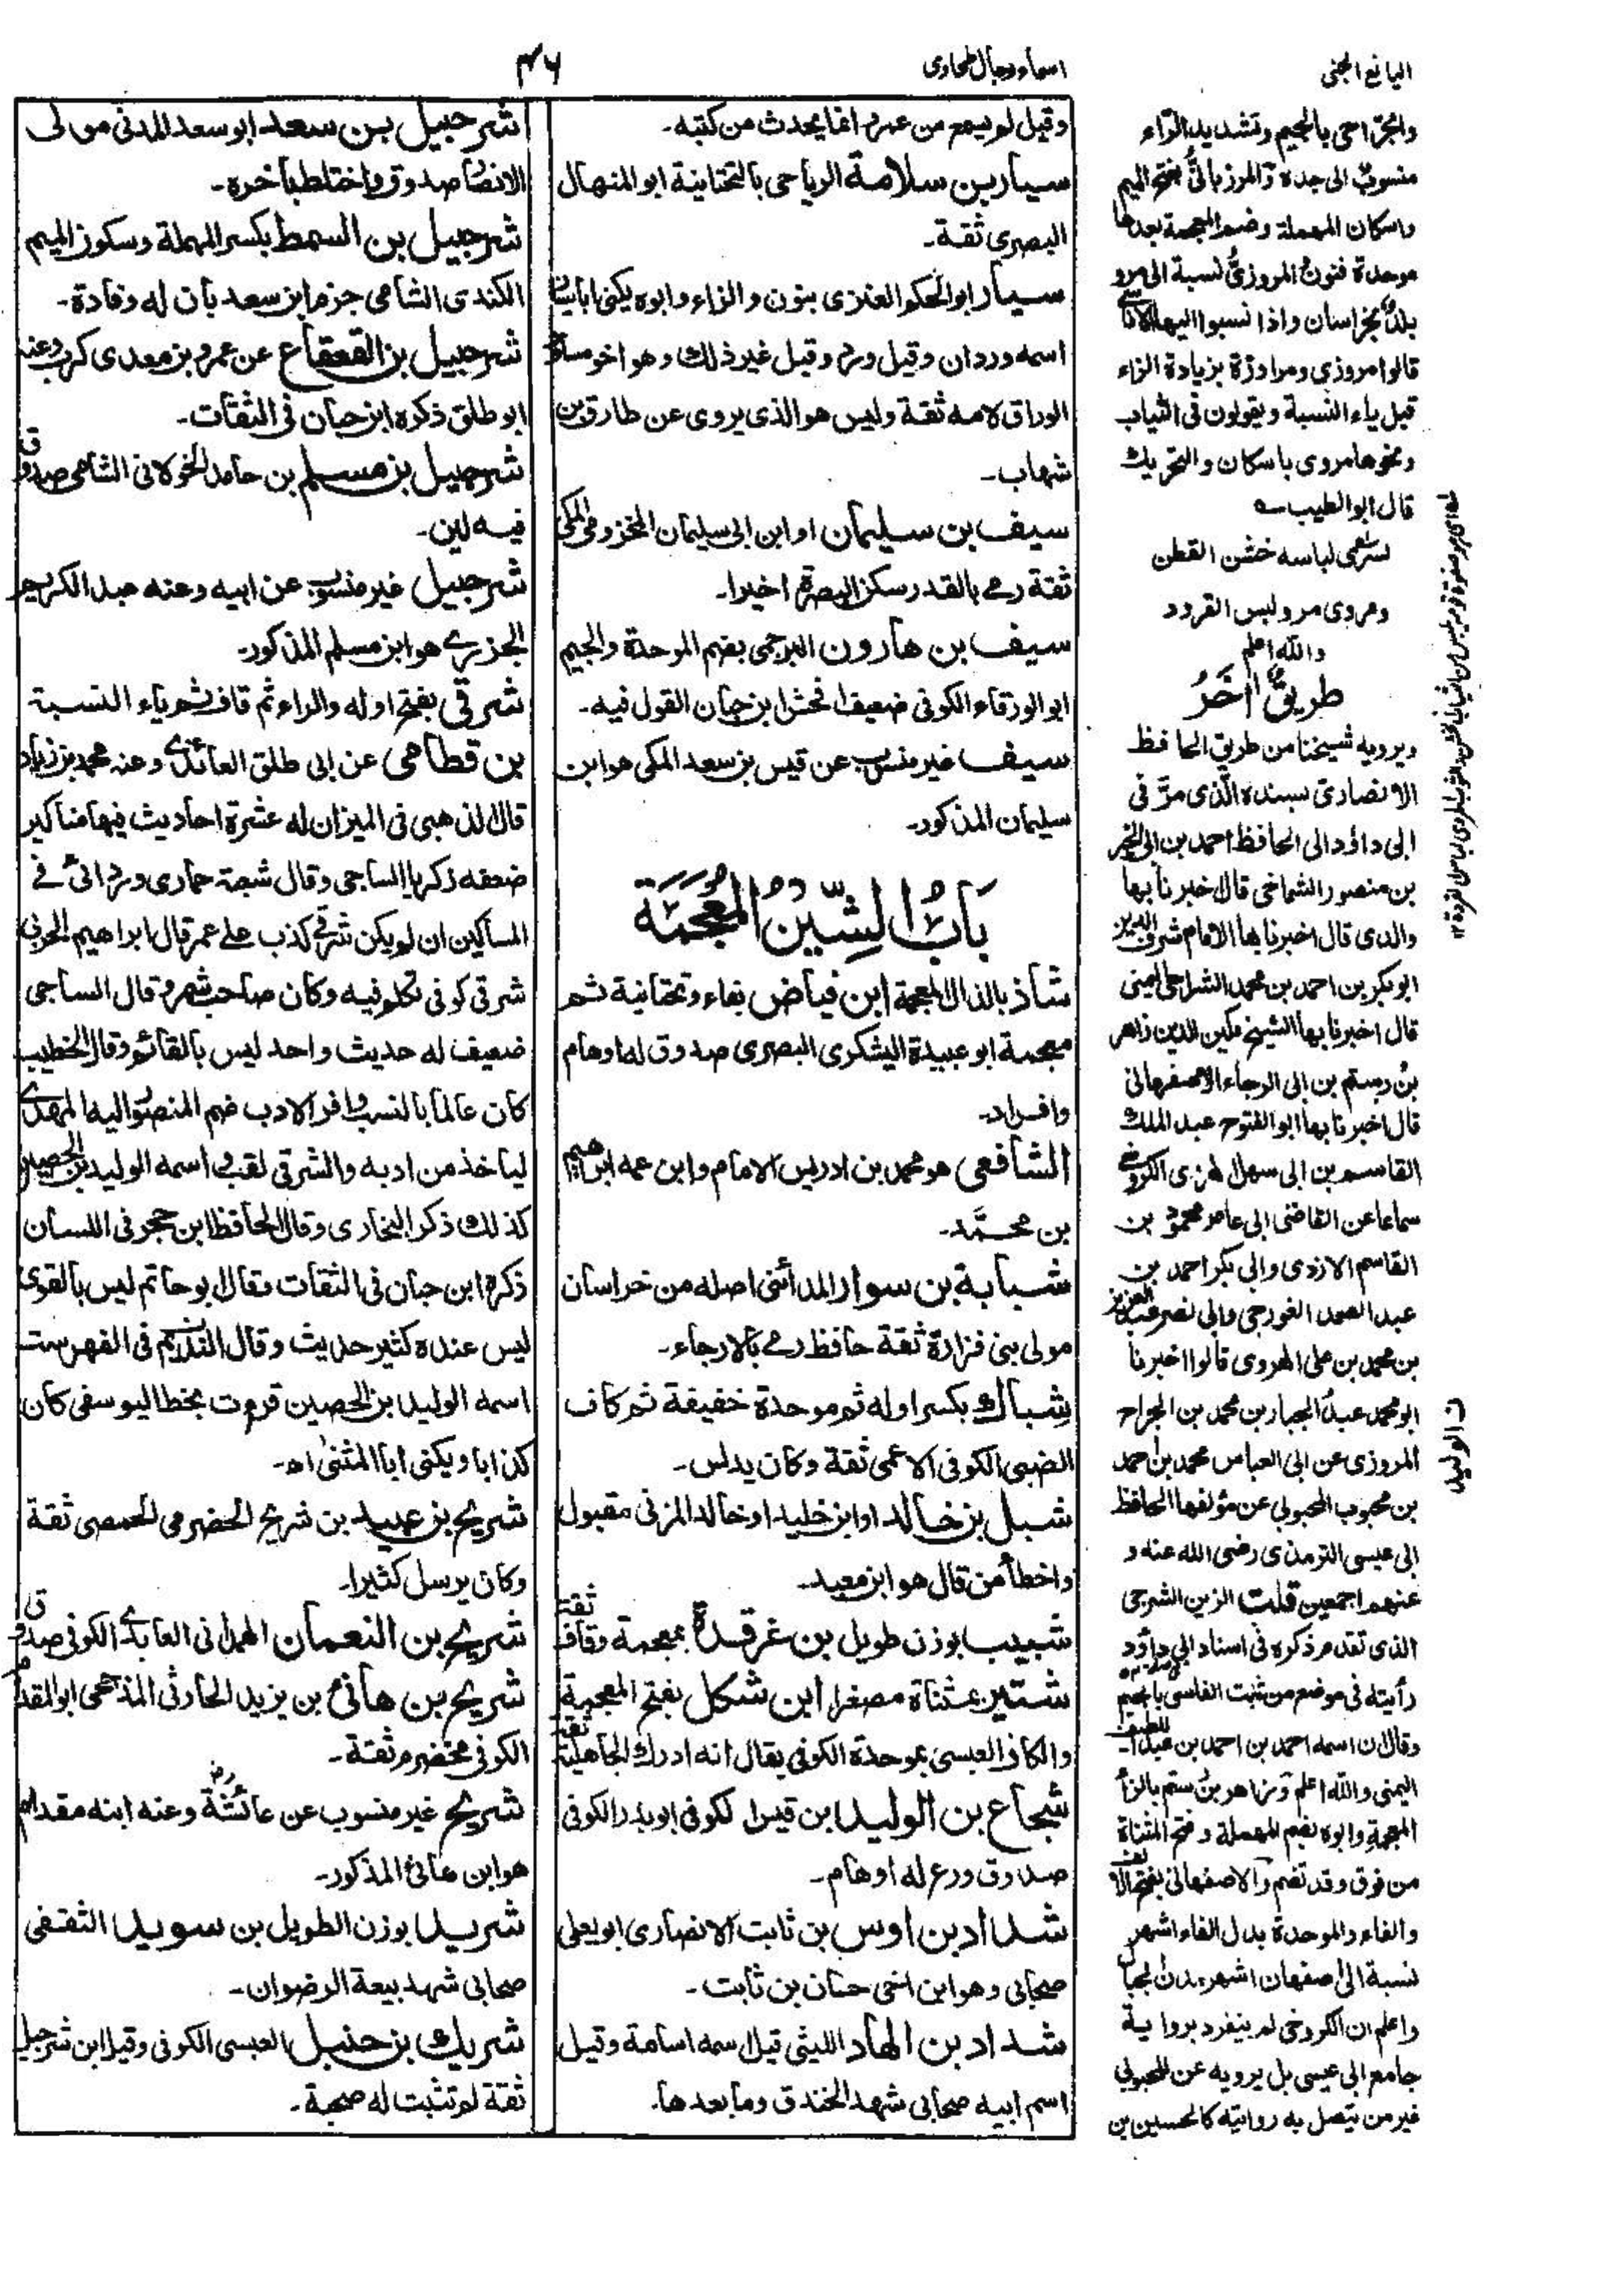 اليانع الجنى
اسماء رجال طحاوى
٣٦
وقيل لم يسمع من عمر انما يحدث من كتبه۔
سيار بن سلامة الرياحى بالتحتانية ابو المنهال
البصرى ثقة۔
سيار ابو الحكم العنزى بنون والزاء وابوه يكنى ابا سيار
اسمه وردان وقيل ورد وقيل غير ذلك وهو اخو مساور
الوراق لامه ثقة وليس هو الذى يروى عن طارق بن
شهاب۔
سيف بن سليمان او ابن ابى سليمان المخزومى المكى
ثقة رمى بالقدر سكن البصرة اخيرا۔
سيف بن هارون البرجمى بضم الموحدة والجيم
ابو الورقاء الكوفى ضعيف افحش ابن حبان القول فيه۔
سيف غير منسوب عن قيس بن سعد المكى هو ابن
سليمان المذكور۔
بَابُ الشِّيْنِ الْمُعْجَمَة
شاذ بالذال المعجمة ابن فياض بفاء وتحتانية ثم
معجمة ابو عبيدة اليشكرى البصرى صدوق له اوهام
وافراد۔
الشافعى هو محمد بن ادريس الامام وابن عمه ابراهيم
بن محمَّد۔
شبابة بن سوار المدائنى اصله من خراسان
مولى بنى فزارة ثقة حافظ رمى بالارجاء۔
شِباك بكسر اوله ثم موحدة خفيفة ثم كاف
الضبى الكوفى الاعمى ثقة وكان يدلس۔
شبل بن خالد او ابن خليد او خالد المزنى مقبول
واخطأ من قال هو ابن معبد۔
شبيب بوزن طويل بن غرقدة بمعجمة وقاف ثقة
شتير بمثناة مصغرا ابن شكل بفتح المعجمة
والكاف العبسى بموحدة الكوفى يقال انه ادرك الجاهلية ثقة
شجاع بن الوليد ابن قيس الكوفى ابو بدر الكوفى
صدوق ورع له اوهام۔
شداد بن اوس بن ثابت الانصارى ابو يعلى
صحابى وهو ابن اخى حسان بن ثابت۔
شداد بن الهاد الليثى قيل اسمه اسامة وقيل
اسم ابيه صحابى شهد الخندق وما بعدها۔
شرحبيل بن سعد ابو سعد المدنى مولى
الانصار صدوق واختلط بأخره۔
شرحبيل بن السمط بكسر المهملة وسكون الميم
الكندى الشامى جزم ابن سعد بان له وفادة۔
شرحبيل بن القعقاع عن عمرو بن معدى كرب وعنه
ابو طلق ذكره ابن حبان فى الثقات۔
شرحبيل بن مسلم بن حامد الخولانى الشامى صدوق
فيه لين۔
شرحبيل غير منسوب عن ابيه وعنه عبد الكريم
الجزرى هو ابن مسلم المذكور۔
شرقى بفتح اوله والراء ثم قاف ثم ياء النسبة
بن قطامى عن ابى طلق العائذى وعنه محمد بن زياد
قال الذهبى فى الميزان له عشرة احاديث فيها مناكير
ضعفه زكريا الساجى وقال شعبة حمارى وردائى فى
المساكين ان لم يكن شرقى كذب على عمر قال ابراهيم الحربى
شرقى كوفى تكلم فيه وكان صاحب سمر وقال الساجى
ضعيف له حديث واحد ليس بالقائم وقال الخطيب
كان عالما بالنسب وافر الادب ضم المنصور اليه المهدى
لياخذ من ادبه والشرقى لقب و اسمه الوليد بن الحصين
كذلك ذكر البخارى وقال الحافظ ابن حجر فى اللسان
ذكره ابن حبان فى الثقات وقال ابو حاتم ليس بالقوى
ليس عنده كثير حديث وقال النديم فى الفهرست
اسمه الوليد بن الحصين قرءت بخط اليوسفى كان
كذابا ويكنى ابا المثنى اھ۔
شريح بن عبيد بن شريح الحضرمى الحمصى ثقة
وكان يرسل كثيرا۔
شريح بن النعمان الهمدانى العابدى الكوفى صدوق
شريح بن هانئ بن يزيد الحارثى المذحجى ابو المقدام
الكوفى مخضرم ثقة۔
شريح غير منسوب عن عائشة رض وعنه ابنه مقدام
هو ابن هانئ المذكور۔
شريد بوزن الطويل بن سويد الثقفى
صحابى شهد بيعة الرضوان۔
شريك بن حنبل العبسى الكوفى وقيل ابن شرحبيل
ثقة لم تثبت له صحبة۔
والجراحى بالجيم وتشديد الراء
منسوب الى جده والمرزبانى بفتح الميم
واسكان المهملة وضم المعجمة بعدها
موحدة فنون المروزى نسبة الى مرو
بلد بخراسان واذا نسبوا اليها الاناسى
قالوا مروزى ومراوزة بزيادة الزاء
قبل ياء النسبة ويقولون فى الثياب
ونحوها مروى باسكان والتحريك
قال ابو الطيب
لباسه خشن القطن
ومروى مرو لبس القرود
والله اعلم
طريق اٰخَرُ
ويرويه شيخنا من طريق الحافظ
الانصارى بسنده الّذى مرّ فى
ابى داؤد الى الحافظ احمد بن ابى الخير
بن منصور الشماخى قال اخبرنا بها
والدى قال اخبرنا بها الامام شرف الدين
ابو بكر بن احمد بن محمد الشراحى اليمنى
قال اخبرنا بها الشيخ مكين الدين زاهر
بن رستم بن ابى الرجاء الاصفهانى
قال اخبرنا بها ابو الفتوح عبد الملك
القاسم بن ابى سهل الهروى الكروخى
سماعا عن القاضى ابى عامر محمود بن
القاسم الازدى وابى بكر احمد بن
عبد الصمد الغورجى وابى نصر عبد العزيز
بن محمد بن على الهروى قالوا اخبرنا
ابو محمد عبد الجبار بن محمد بن الجراح
المروزى عن ابى العباس محمد بن احمد
بن محبوب المحبوبى عن مؤلفها الحافظ
ابى عيسى الترمذى رضى الله عنه و
عنهم اجمعين قلت الزين الشرجى
الذى تقدم ذكره فى اسناد ابى داؤد
رأيته فى موضع من ثبت الفاسى بالجيم
وقال ان اسمه احمد بن احمد بن عبد اللطيف
اليمنى والله اعلم وزاهر بن رستم بالزأ
المعجمة وابوه بضم المهملة وفتح المثناة
من فوق وقد تضم والاصفهانى بفتح الالف
والفاء والموحدة بدل الفاء اشهر
نسبة الى اصفهان اشهر مدن الجبال
واعلم ان الكروخى لم ينفرد برواية
جامع ابى عيسى بل يرويه عن المحبوبى
غير من يتصل به روايته كالحسين بن
ن الوليد